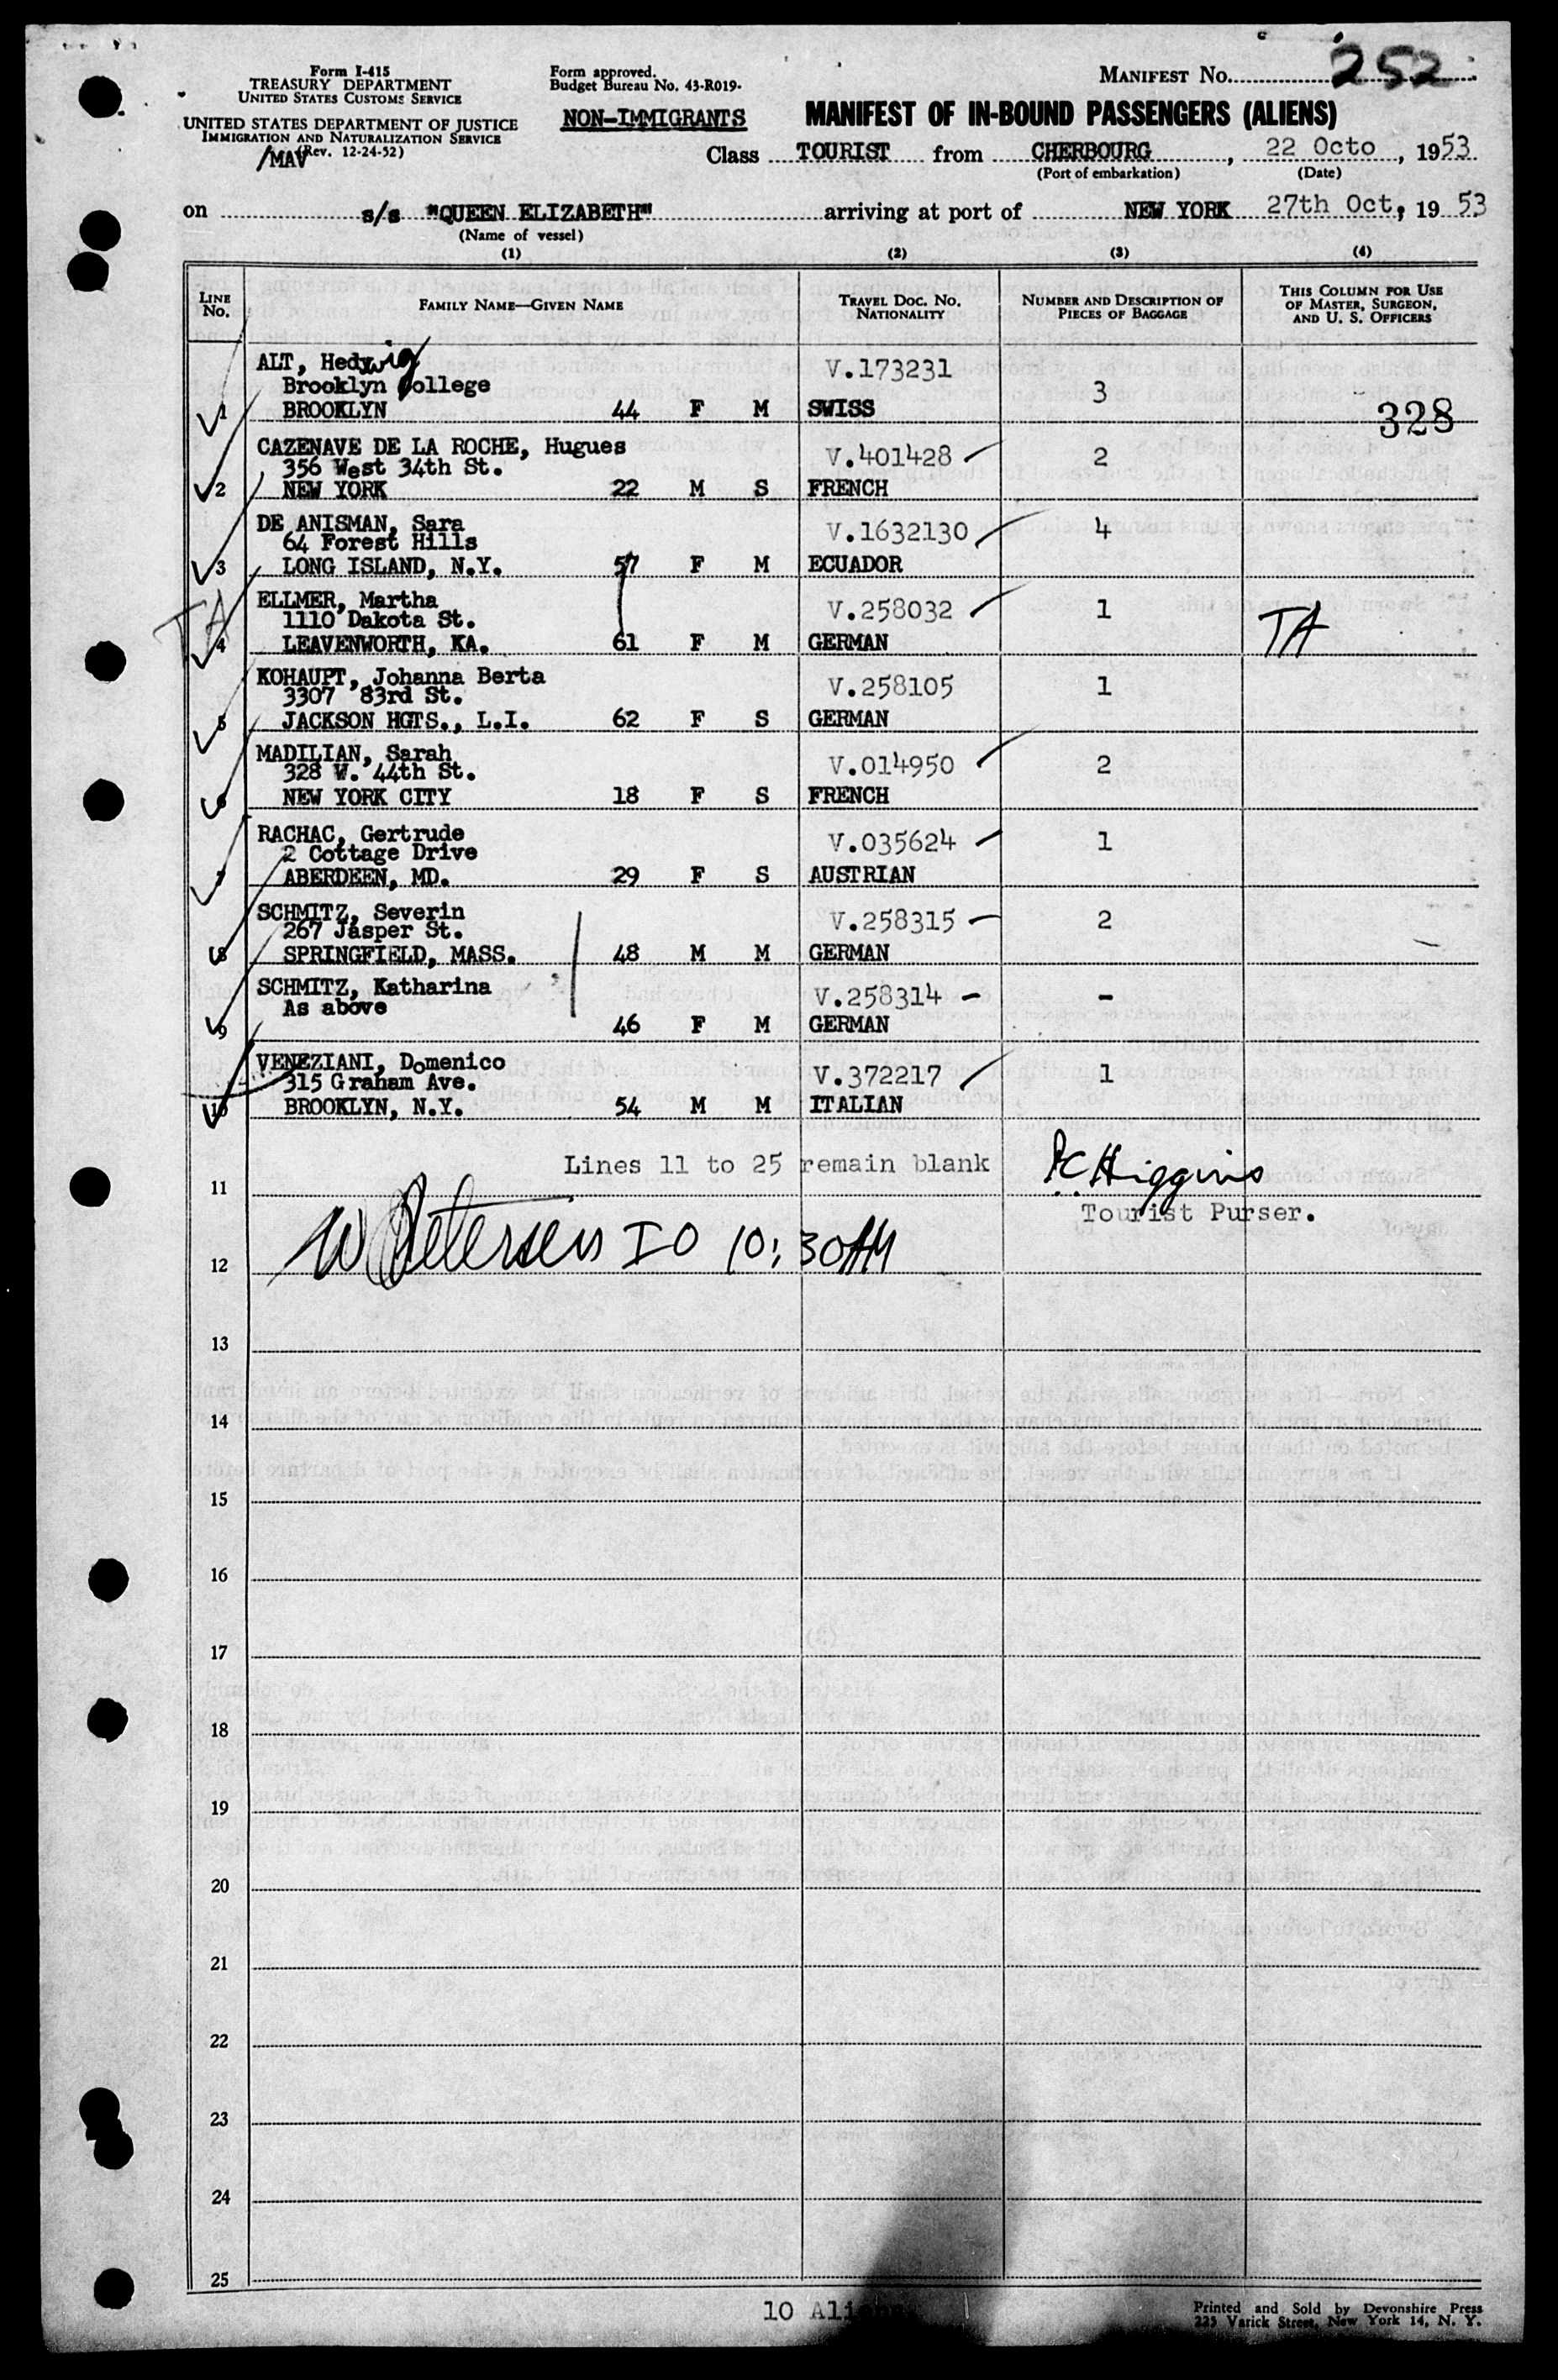 Form I-415
TREASURY DEPARTMENT
UNITED STATES CUSTOMS SERVICE
UNITED STATES DEPARTMENT OF JUSTICE
IMMIGRATION AND NATURALIZATION SERVICE
(Rev. 12-24-52)
/MAV
Form approved.
Budget Bureau No. 43-R019-
NON-IMMIGRANTS
MANIFEST No. 252
MANIFEST OF IN-BOUND PASSENGERS (ALIENS)
Class TOURIST from CHERBOURG, 22 Octo, 1953
(Port of embarkation) (Date)
on s/s "QUEEN ELIZABETH" arriving at port of NEW YORK 27th Oct, 1953
(Name of vessel)
(1) (2) (3) (4)
LINE No. FAMILY NAME—GIVEN NAME TRAVEL DOC. No. NATIONALITY NUMBER AND DESCRIPTION OF PIECES OF BAGGAGE THIS COLUMN FOR USE OF MASTER, SURGEON, AND U. S. OFFICERS
ALT, Hedwig V.173231
Brooklyn College 3
1 BROOKLYN 44 F M SWISS 328
CAZENAVE DE LA ROCHE, Hugues V.401428 2
356 West 34th St.
2 NEW YORK 22 M S FRENCH
DE ANISMAN, Sara V.1632130 4
64 Forest Hills
3 LONG ISLAND, N.Y. 57 F M ECUADOR
ELLMER, Martha V.258032 1
1110 Dakota St. TA
TA 4 LEAVENWORTH, KA. 61 F M GERMAN
KOHAUPT, Johanna Berta V.258105 1
3307 83rd St.
5 JACKSON HGTS., L.I. 62 F S GERMAN
MADILIAN, Sarah V.014950 2
328 W. 44th St.
6 NEW YORK CITY 18 F S FRENCH
RACHAC, Gertrude V.035624 1
2 Cottage Drive
7 ABERDEEN, MD. 29 F S AUSTRIAN
SCHMITZ, Severin V.258315 2
267 Jasper St.
8 SPRINGFIELD, MASS. 48 M M GERMAN
SCHMITZ, Katharina V.258314 -
As above
9 46 F M GERMAN
VENEZIANI, Domenico V.372217 1
315 Graham Ave.
10 BROOKLYN, N.Y. 54 M M ITALIAN
Lines 11 to 25 remain blank
Higgins
11
Tourist Purser.
W Petersen I O 10:30 AM
12
13
14
15
16
17
18
19
20
21
22
23
24
25
10
Printed and Sold by Devonshire Press
225 Varick Street, New York 14, N. Y.